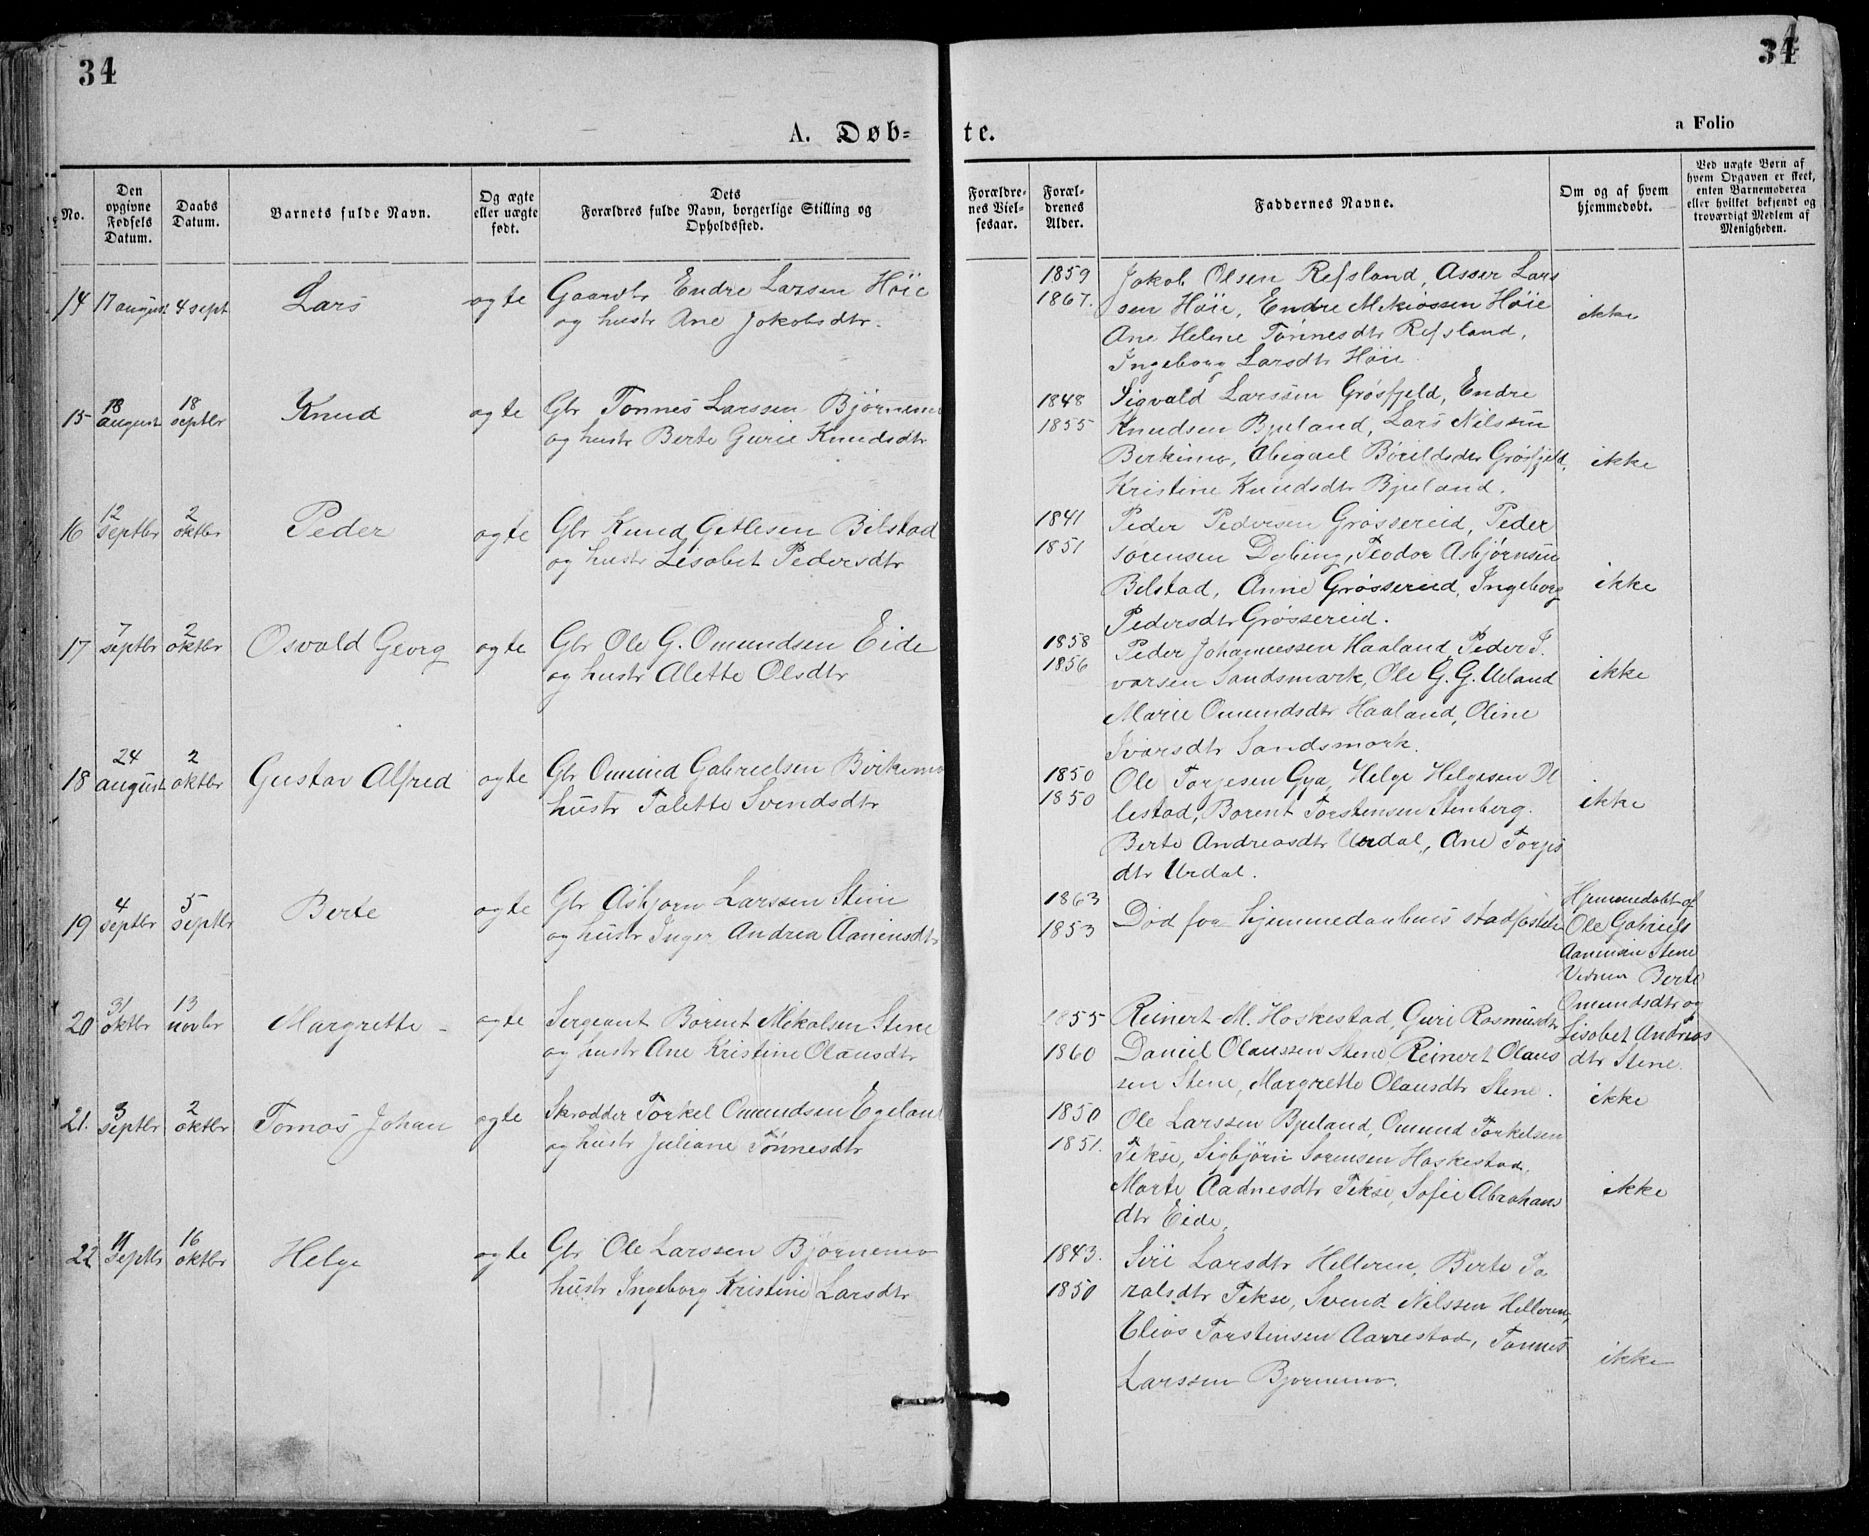 34
34
A. Døb-
te.
a Folio
No.
Den opgivne Fødsels Datum.
Daabs Datum.
Barnets fulde Navn.
Og ægte eller uægte født.
Dets Forældres fulde Navn, borgerlige Stilling og Opholdssted.
Forældrenes Vielsesaar.
Forældrenes Alder.
Faddernes Navne.
Om og af hvem hjemmedøbt.
Ved uægte Børn af hvem Opgaven er skeet, enten Barnemoderen eller hvilket bekjendt og troværdigt Medlem af Menigheden.
14 17 august 4 sept Lars ægte Gaardbr Endre Larsen Höie
og hustr Ane Jakobsdtr.
1859
1867.
Jakob Olsen Refsland, Asser Lars
sen Höie, Endre Höie
Ane Helene Tönnesdtr Refsland,
Ingeborg Larsdtr Höie.
ikke
15 18 august 18 septbr Knud ægte Gbr Tönnes Larssen Björnemo
og hustr Berte Gurie Knudsdtr
1848
1855
Sigvald Larssen Grösfjeld, Endre
Knudsen Bjuland, Lars Nilssen
Birkemo, Abigael Grösfjeld,
Kristine Knudsdtr Bjuland.
ikke
16 12 septbr 2 oktbr Peder ægte Gbr Knud Getlesen Bilstad
og hustr Lisabet Pedersdtr
1841
1851
Peder Pedersen Grössereid, Peder
Sørensen Dybing, Teodor Asbjørnsen
Bilstad, Anne Grössereid, Ingeborg
Pedersdtr Grössereid.
ikke
17 7 septbr 2 oktbr Osvald Georg ægte Gbr Ole G. Omundsen Eide
og hustr Alette Olsdtr
1858
1856
Peder Johannessen Haaland, Peder I
varsen Sandsmark, Ole G. G. Ueland
Marie Omundsdtr Haaland, Oline
Ivarsdtr Sandsmark.
ikke
18 24 august 2 oktbr Gustav Alfred ægte Gbr Omund Gabrielsen Birkemo
hustr Talette Svendsdtr
1850
1850
Ole Torjesen Gya, Helge Helgesen Øl
lestad, Barent Torstensen Stenberg.
Berte Andreasdtr Urdal, Ane Torjes
dtr Urdal.
ikke
19 4 septbr 5 septbr Berte ægte Gbr Asbjørn Larssen Stene
og hustr Inger Andrea Aanensdtr
1863
1853
Död før hjemmedaabens stadfæstelse
Hjemmedøbt af
Ole Gabriels
Aanensen Stene
Vidner Berte
Omundsdtr og
Lisabet Andreas
dtr Stene.
20 31 oktbr 13 novbr Margrette ægte Sergeant Barent Mikalsen Stene
og hustr Ane Kristine Olausdtr
1855
1860
Reinert M. Haskestad, Guri Rasmusdtr
Daniel Olaussen Stene, Reinert Olaus
sen Stene, Margrette Olausdtr Stene.
ikke
21. 3 septbr 2 oktbr Tomas Johan ægte Skrædder Torkel Omundsen Egeland
og hustr Juliane Tönnesdtr
1850
1851.
Ole Larssen Bjuland, Omund Torkelsen
Tekse, Sigbjörn Sørensen Haskestad,
Marte Aadnesdtr Tekse, Sofie Abrahams
dtr Eide,
ikke
22 11 septbr 16 oktbr Helge ægte Gbr Ole Larssen Björnemo
hustr Ingeborg Kristine Larsdtr
1843.
1850
Siri Larsdtr Helleren, Berte Ta
ralsdtr Tekse, Svend Nilssen Helleren,
Elias Torstensen Aarrestad, Tønnes
Larssen Bjørnemo.
ikke